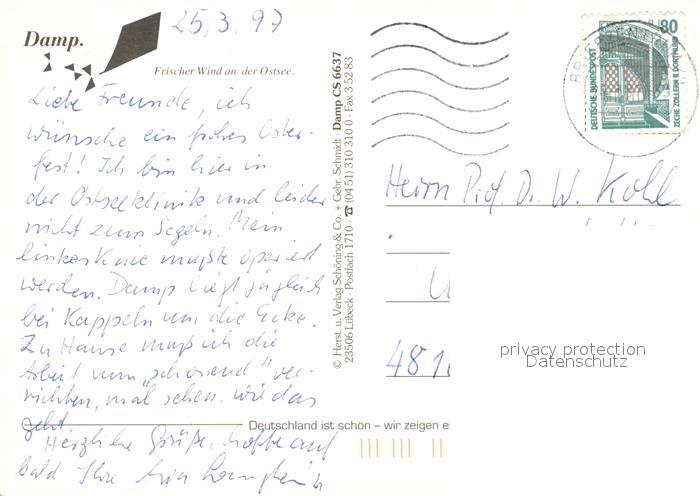 25.3.97
Damp.
Frischer Wind an der Ostsee.
Liebe Freunde, ich
wünsche ein frohes Oster-
fest! Ich bin hier in
der Ostseeklinik und leider
nicht zum Segeln. Mein
linkes Knie mußte operiert
werden. Damp liegt ja gleich
bei Kappeln um die Ecke.
Zu Hause muß ich die
Arbeit nun „schonend" ver-
richten, mal sehen, wie das
geht.
Herzliche Grüße, hoffe auf
bald Ihre
© Herst. u. Verlag Schöning & Co. + Gebr. Schmidt · Damp CS 6637
23506 Lübeck · Postfach 1710 · ☎ (04 51) 310 310 0 · Fax 3 52 83
Deutschland ist schön – wir zeigen e
80
DEUTSCHE BUNDESPOST
ZECHE ZOLLERN II DORTMUND
Herrn Prof. Dr. W. Kohl
481
privacy protection
Datenschutz